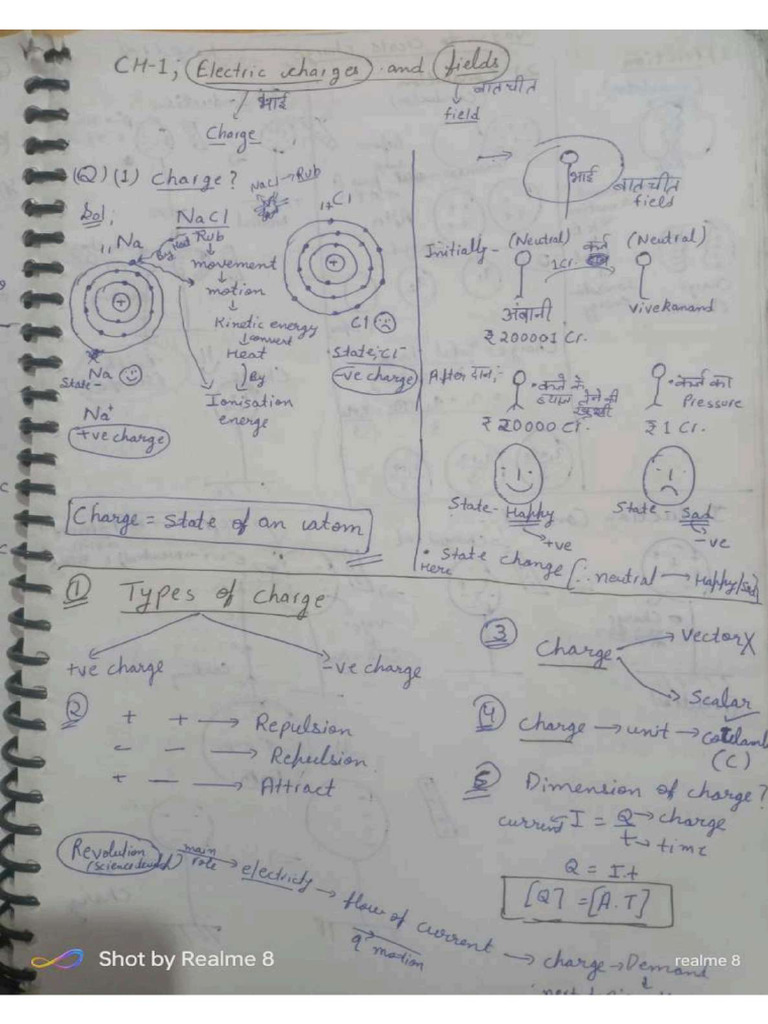 CH-1; Electric charges and fields
भाई
Charge
बातचीत
field
(Q) (1) Charge?
Sol;
NaCl
NaCl → Rub
₁₁Na
Rub
movement
motion
Kinetic energy
convert
Heat
By
Ionisation
energe
By Heat
₁₇Cl
+
+
Na
State-
Na⁺
+ve charge
Cl
State; Cl⁻
-ve charge
Charge = State of an atom
भाई
बातचीत
field
Initially - (Neutral)
1Cr.
(Neutral)
अंबानी
Vivekanand
₹ 200001 Cr.
After दान;-
• कर्ज का
Pressure
₹ 20000 Cr.
₹ 1 Cr.
State- Happy
+ve
State - Sad
-ve
• State change [∵ neutral → Happy/Sad]
Here
① Types of charge
+ve charge
-ve charge
② + + → Repulsion
- - → Repulsion
+ - → Attract
③ Charge
Vector X
Scalar ✓
④ Charge → unit →
(C)
⑤ Dimension of charge?
current I = Q/t
→ charge
→ time
Q = I.t
[Q] = [A.T]
Revolution
main
role
→ electricity → flow of current → charge → Demand
q motion
Shot by Realme 8
realme 8